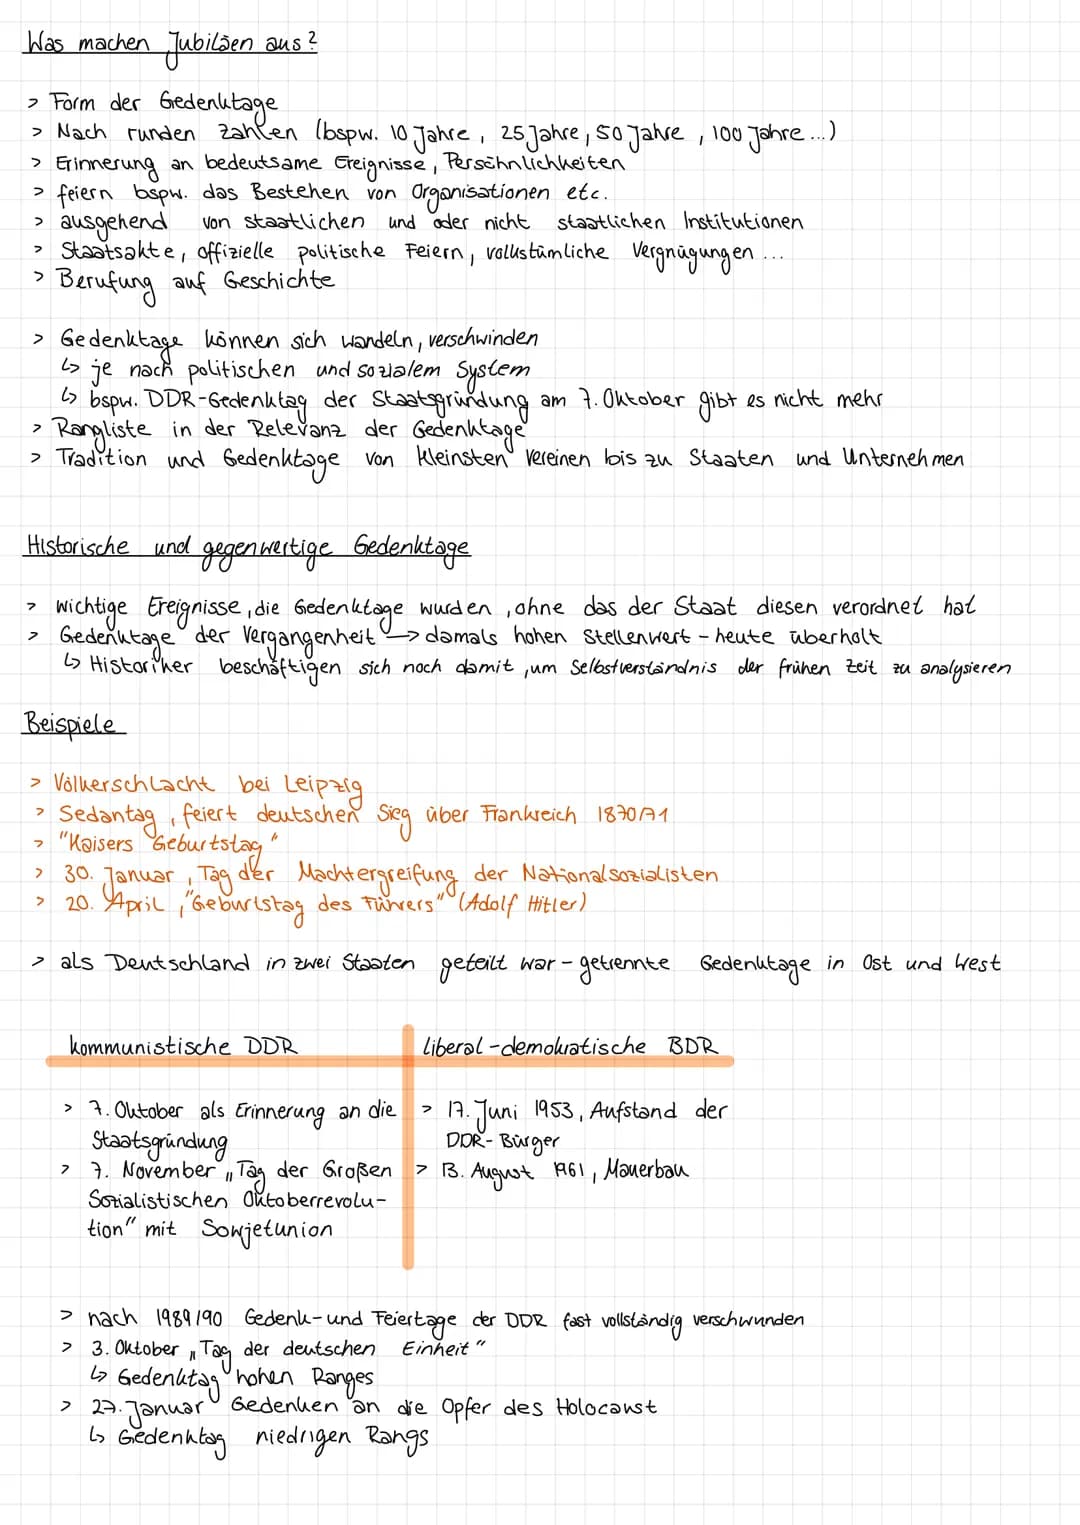 Was machen Jubiläen aus?
> Form der Gedenktage
> Nach runden Zahlen (bspw. 10 Jahre, 25 Jahre, 50 Jahre, 100 Jahre ...)
> Erinnerung an bedeutsame Ereignisse, Persöhnlichkeiten
> feiern bspw. das Bestehen von Organisationen etc.
> ausgehend von staatlichen und oder nicht staatlichen Institutionen
> Staatsakte, offizielle politische Feiern, volkstümliche Vergnügungen ...
> Berufung auf Geschichte
> Gedenktage können sich wandeln, verschwinden
↳ je nach politischen und sozialem System
↳ bspw. DDR-Gedenktag der Staatsgründung am 7. Oktober gibt es nicht mehr
> Rangliste in der Relevanz der Gedenktage
> Tradition und Gedenktage von kleinsten Vereinen bis zu Staaten und Unternehmen
Historische und gegenwertige Gedenktage
> wichtige Ereignisse, die Gedenktage wurden, ohne das der Staat diesen verordnet hat
> Gedenktage der Vergangenheit → damals hohen Stellenwert - heute überholt
↳ Historiker beschäftigen sich noch damit, um Selbstverständnis der frühen Zeit zu analysieren
Beispiele
> Völkerschlacht bei Leipzig
> Sedantag, feiert deutschen Sieg über Frankreich 1870/71
> "Kaisers Geburtstag"
> 30. Januar, Tag der Machtergreifung der Nationalsozialisten
> 20. April, "Geburtstag des Führers" (Adolf Hitler)
> als Deutschland in zwei Staaten geteilt war - getrennte Gedenktage in Ost und West
kommunistische DDR
> 7. Oktober als Erinnerung an die
Staatsgründung
> 7. November „Tag der Großen
Sozialistischen Oktoberrevolu-
tion" mit Sowjetunion
liberal-demokratische BDR
> 17. Juni 1953, Aufstand der
DDR-Bürger
> 13. August 1961, Mauerbau
> nach 1989/90 Gedenk- und Feiertage der DDR fast vollständig verschwunden
> 3. Oktober „Tag der deutschen Einheit"
↳ Gedenktag hohen Ranges
> 27. Januar Gedenken an die Opfer des Holocaust
↳ Gedenktag niedrigen Rangs